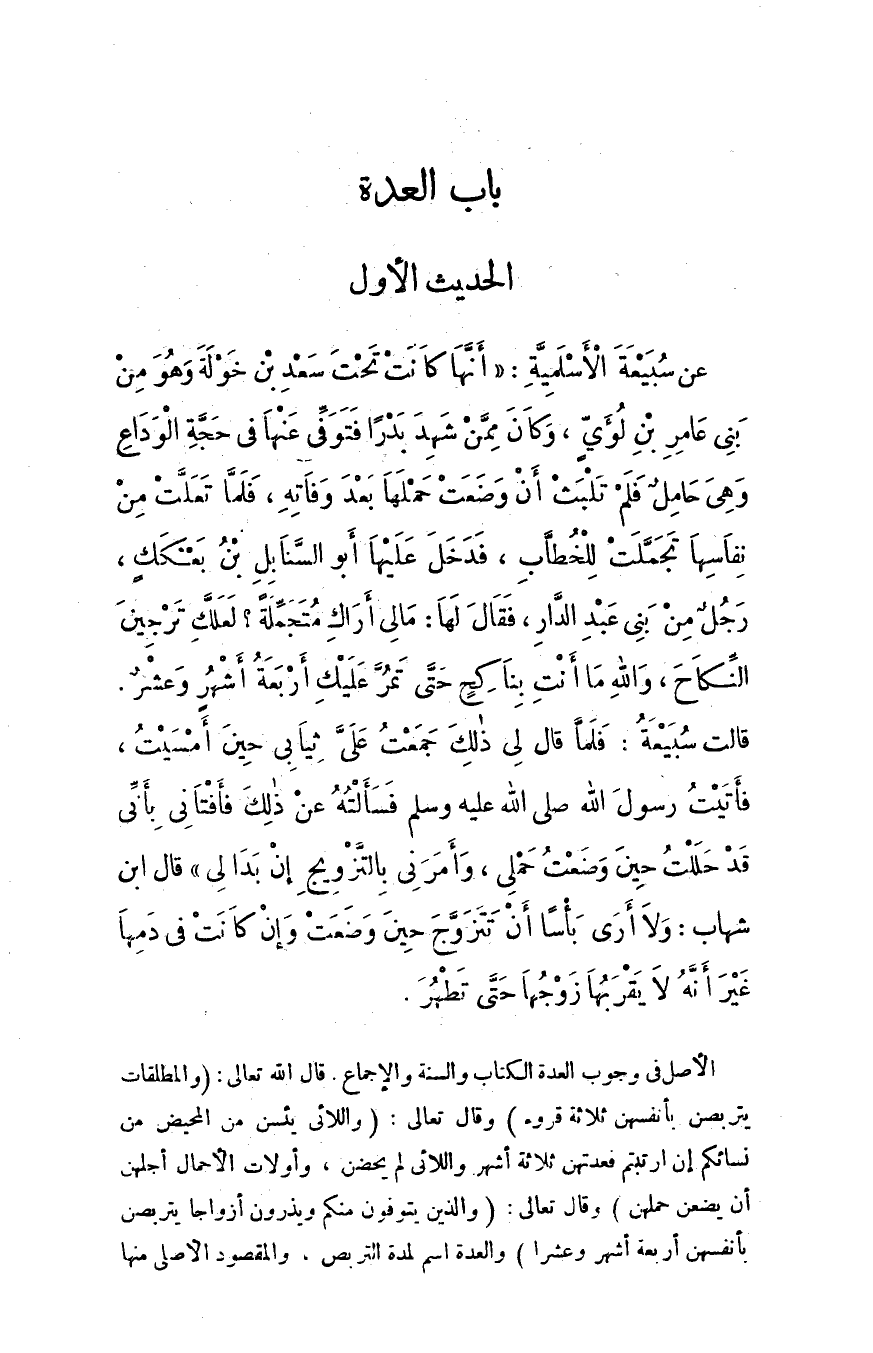 باب العدة
الحديث الأول
عن سُبَيْعَةَ الْأَسْلَمِيَّةِ : « أَنَّهَا كَانَتْ تَحْتَ سَعْدِ بْنِ خَوْلَةَ وَهُوَ مِنْ
بَنِى عَامِرِ بْنِ لُؤَيٍّ ، وَكَانَ مِمَّنْ شَهِدَ بَدْرًا فَتَوَفَّى عَنْهَا فى حَجَّةِ الْوَدَاعِ
وَهِىَ حَامِلٌ فَلَمْ تَلْبَثْ أَنْ وَضَعَتْ حَمْلَهَا بَعْدَ وَفَاتِهِ ، فَلَمَّا تَعَلَّتْ مِنْ
نِفَاسِهَا تَجَمَّلَتْ لِلْخُطَّابِ ، فَدَخَلَ عَلَيْهَا أَبو السَّنَابِلِ بْنُ بَعْكَكٍ ،
رَجُلٌ مِنْ بَنِى عَبْدِ الدَّارِ ، فَقَالَ لَهَا : مَالِى أَرَاكِ مُتَجَمِّلَةً ؟ لَعَلَّكِ تَرْجِينَ
النِّكَاحَ ، وَاللهِ مَا أَنْتِ بِنَاكِحٍ حَتَّى تَمُرَّ عَلَيْكِ أَرْبَعَةُ أَشْهُرٍ وَعَشْرٌ .
قالت سُبَيْعَةُ : فَلَمَّا قال لِى ذٰلِكَ جَمَعْتُ عَلَىَّ ثِيَابِى حِينَ أَمْسَيْتُ ،
فَأَتَيْتُ رسولَ الله صلى الله عليه وسلم فَسَأَلْتُهُ عنْ ذٰلِكَ فَأَفْتَانِى بِأَنِّى
قَدْ حَلَلْتُ حِينَ وَضَعْتُ حَمْلِى ، وَأَمَرَنِى بِالتَّزْوِيجِ إِنْ بَدَا لِى » قال ابن
شهاب : وَلاَ أَرَى بَأْسًا أَنْ تَتَزَوَّجَ حِينَ وَضَعَتْ وَإِنْ كَانَتْ فى دَمِهَا
غَيْرَ أَنَّهُ لاَ يَقْرَبُهَا زَوْجُهَا حَتَّى تَطْهُرَ .
الأصل فى وجوب العدة الكتاب والسنة والإجماع . قال الله تعالى : ( والمطلقات
يتربصن بأنفسهن ثلاثة قروء ) وقال تعالى : ( واللائى يئسن من المحيض من
نسائكم إن ارتبتم فعدتهن ثلاثة أشهر واللائى لم يحضن ، وأولات الأحمال أجلهن
أن يضعن حملهن ) وقال تعالى : ( والذين يتوفون منكم ويذرون أزواجا يتربصن
بأنفسهن أربعة أشهر وعشرا ) والعدة اسم لمدة التربص . والمقصود الأصلى منها